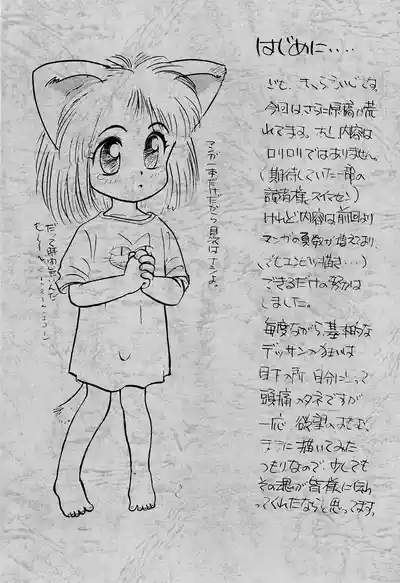 はじめに‥‥
どむ、さくらっ子です。
今回はさらに原稿が荒
れてます。ホし内容は
ロリロリではありません。
(期待していた一部の
読者様スイマセン)
けれど内容は前回より
マンガの頁数が増えてまり、
(でもエンピツ描き…)
できるだけの努力は
しました。
毎度ながら、基本的な
デッサンの狂いは
目下の所、自分にとって
頭痛のタネですが
一応 欲望のおもむく
ままに描いてみた
つもりなので、少しでも
その思いが皆様に伝わ
ってくれたならと思ってます。
マンガ一本だけだから具はナシよ。
だって時間無いんだ